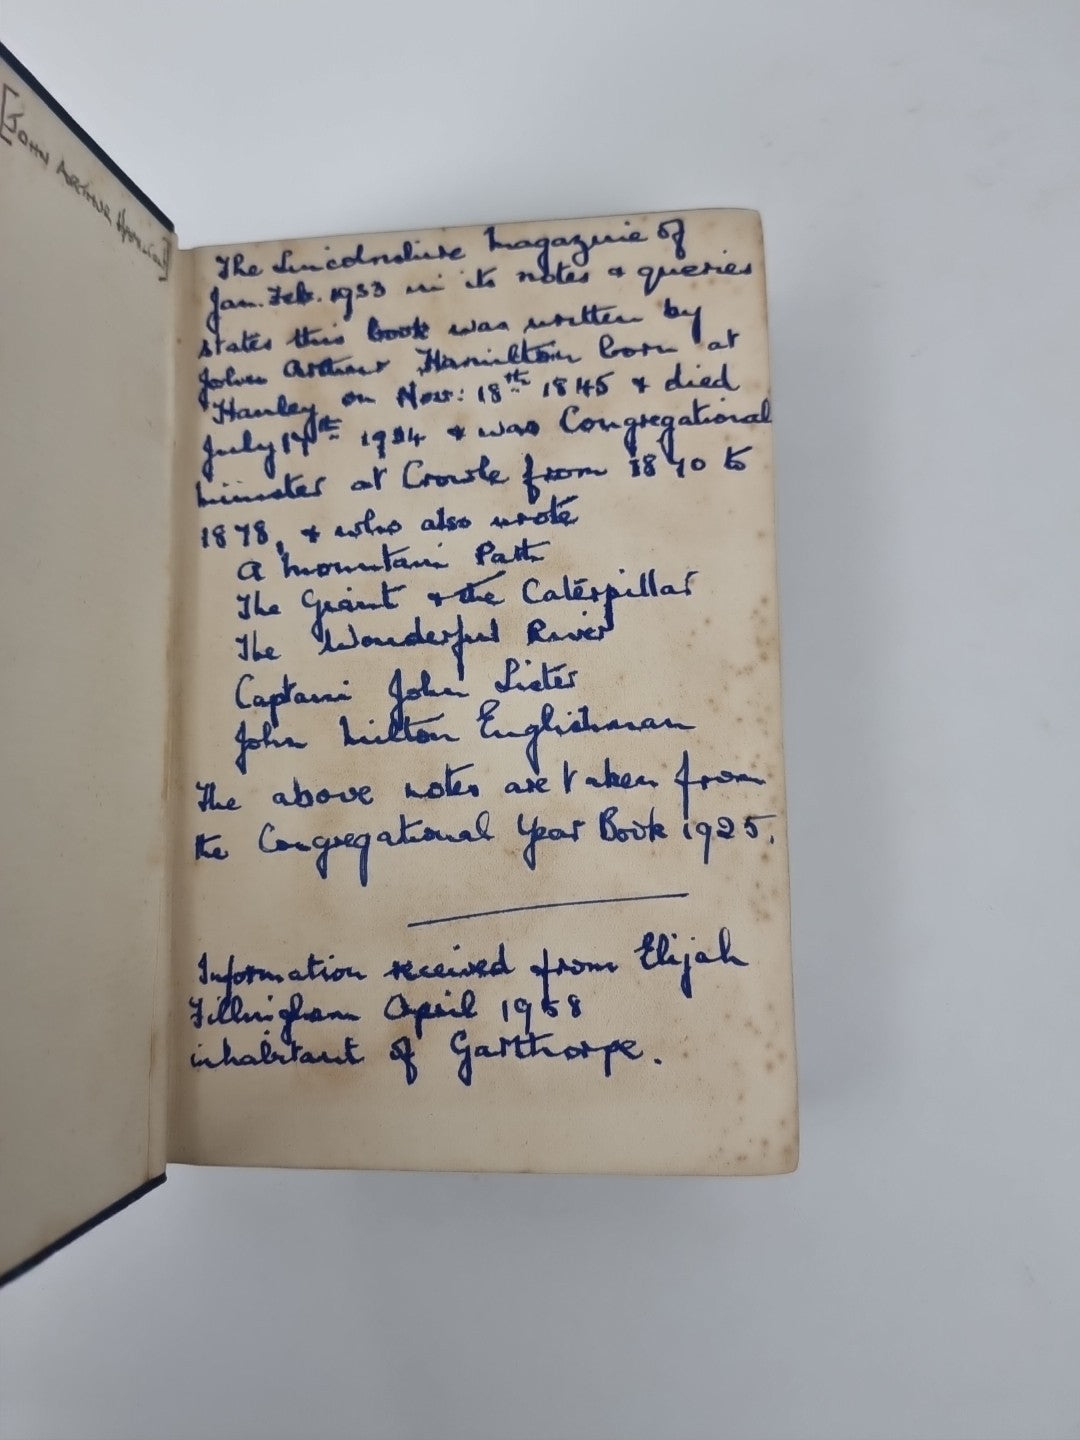 [JOHN ARTHUR HAMILTON]
The Lincolnshire Magazine of
Jan. Feb. 1933 in its notes & queries
states this book was written by
John Arthur Hamilton born at
Hanley on Nov: 18th 1845 & died
July 17th 1924 & was Congregational
minister at Crowle from 1870 to
1878, & who also wrote
A Mountain Path
The Giant & the Caterpillar
The Wonderful River
Captain John Lister
John Milton Englishman
The above notes are taken from
the Congregational Year Book 1925.
Information received from Elijah
Fillingham April 1958
inhabitant of Garthorpe.